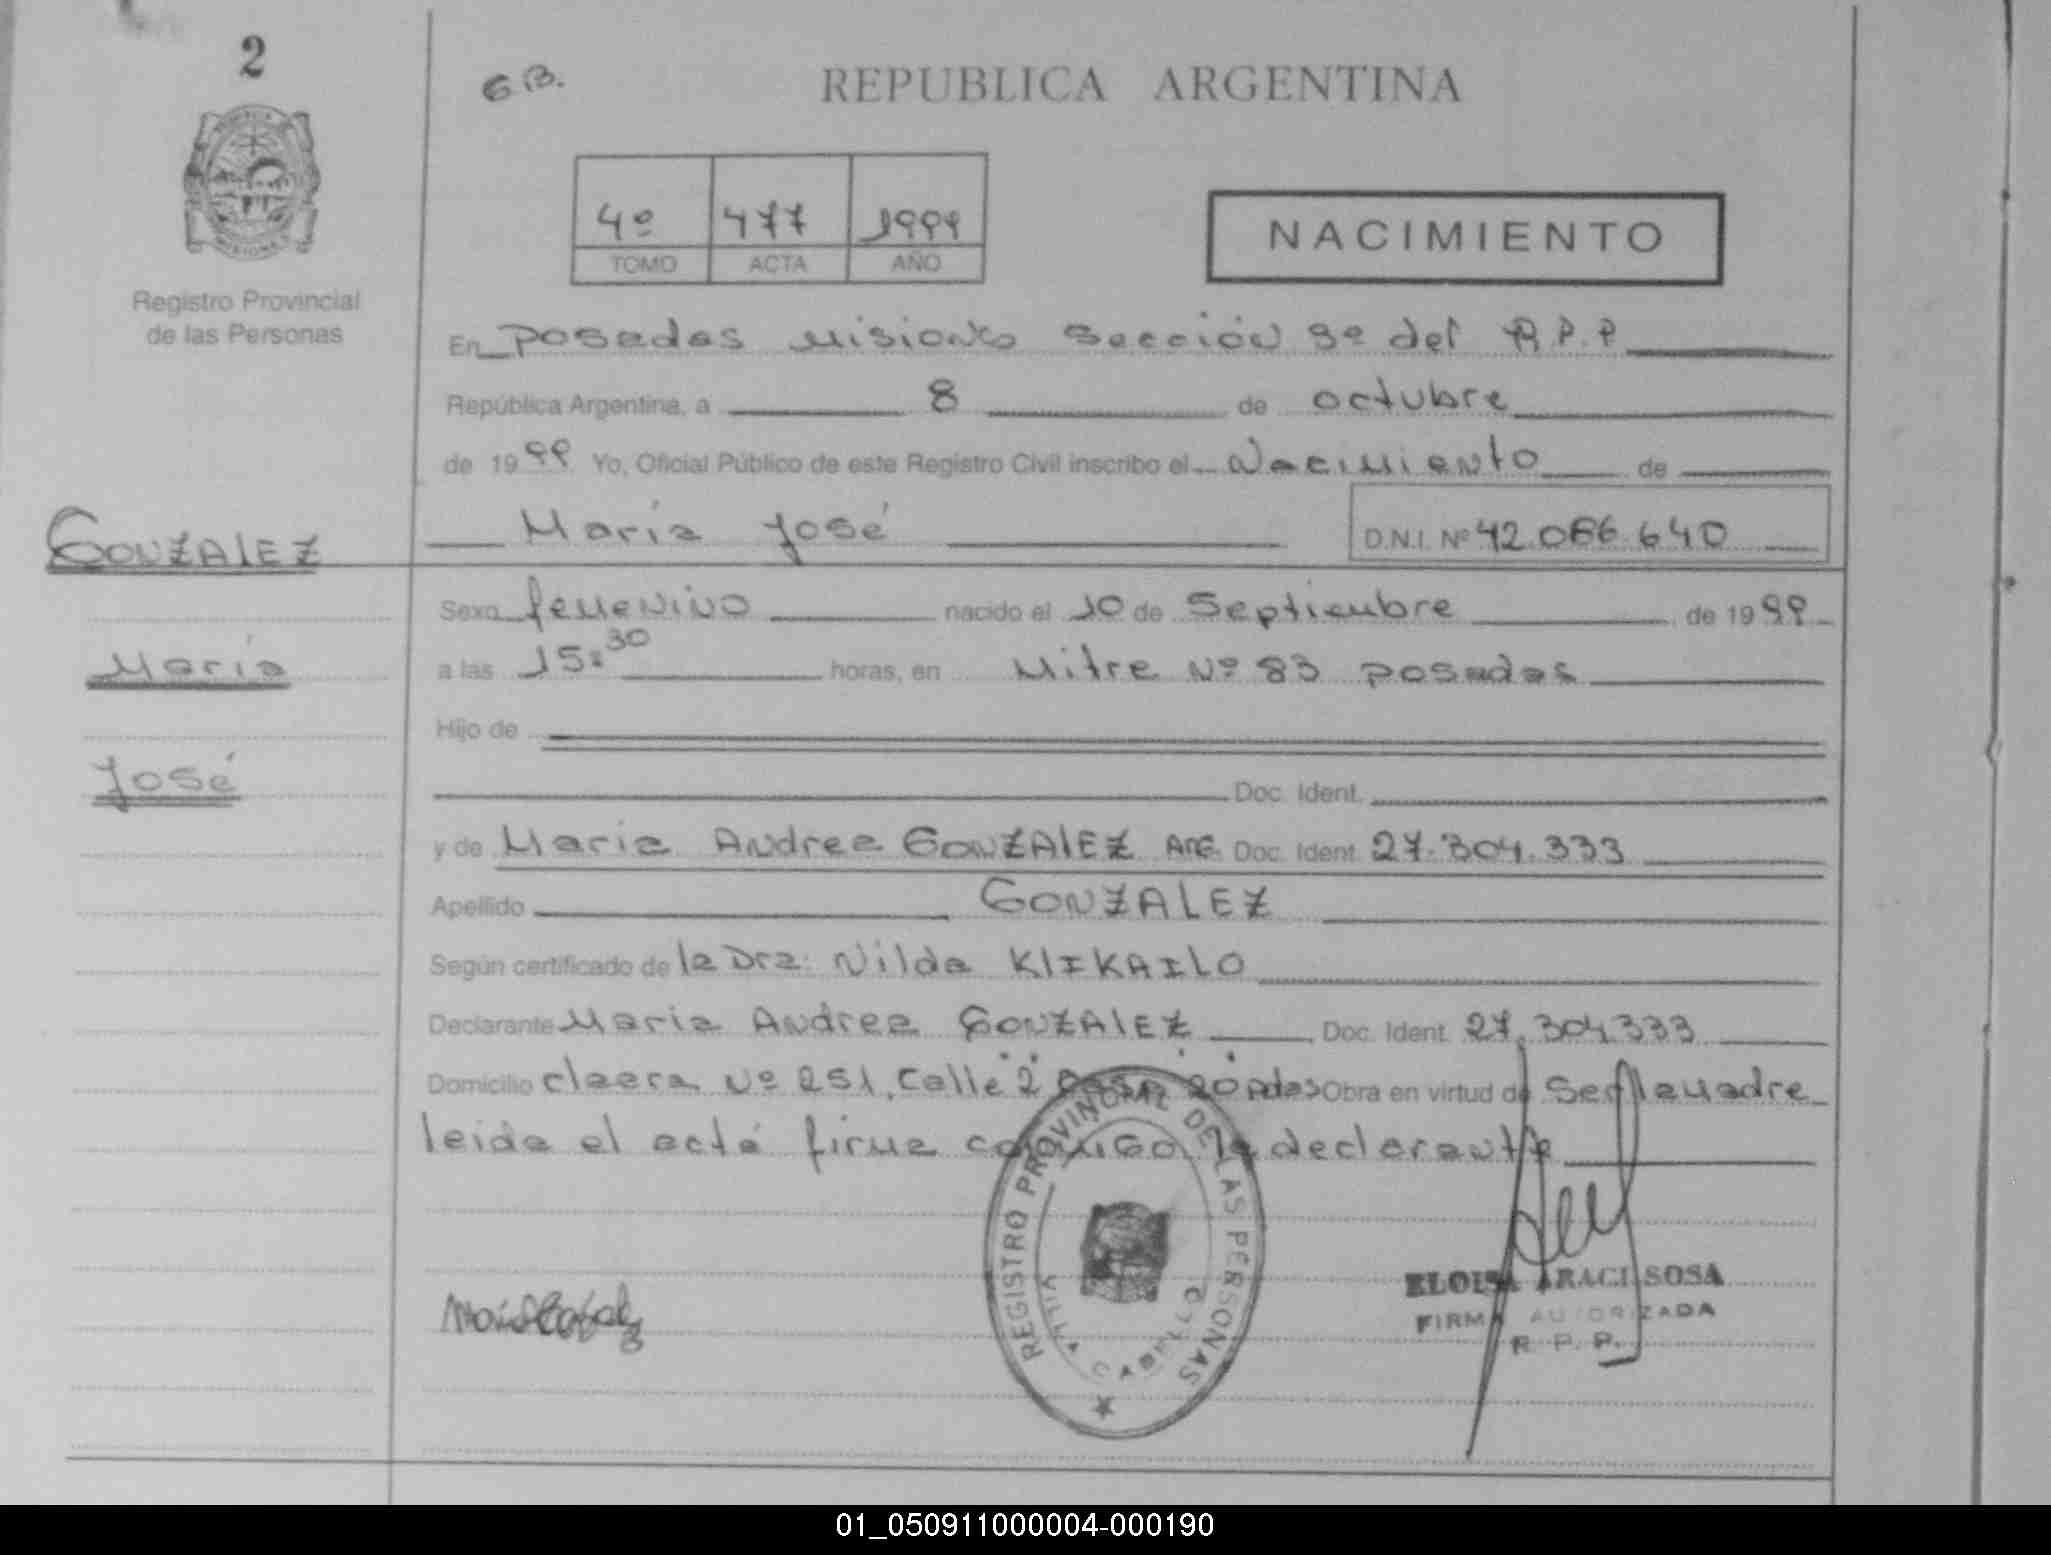 2
G.B.
REPUBLICA ARGENTINA
4º 477 1999
TOMO ACTA AÑO
NACIMIENTO
Registro Provincial
de las Personas
En Posadas Misiones Sección 9º del R.P.P
República Argentina, a 8 de octubre
de 1999 Yo, Oficial Público de este Registro Civil inscribo el Nacimiento de
GONZALEZ
María José D.N.I. Nº 42.066.640
Sexo femenino nacido el 10 de Septiembre de 1999
María
a las 15:30 horas, en Mitre Nº 83 posadas
Hijo de
José
Doc. Ident.
y de Maria Andrea GONZALEZ ARG. Doc. Ident. 27.304.333
Apellido GONZALEZ
Según certificado de la Dra: Nilda KLIKAILO
Declarante Maria Andrea GONZALEZ Doc. Ident. 27.304.333
Domicilio Nº 251, Calle 2 Casa 20 Pdas Obra en virtud de Ser la madre
leida el acta firma conmigo la declarante
REGISTRO PROVINCIAL DE LAS PERSONAS
ELOISA ARACI SOSA
FIRMA AUTORIZADA
R. P. P.
01_050911000004-000190